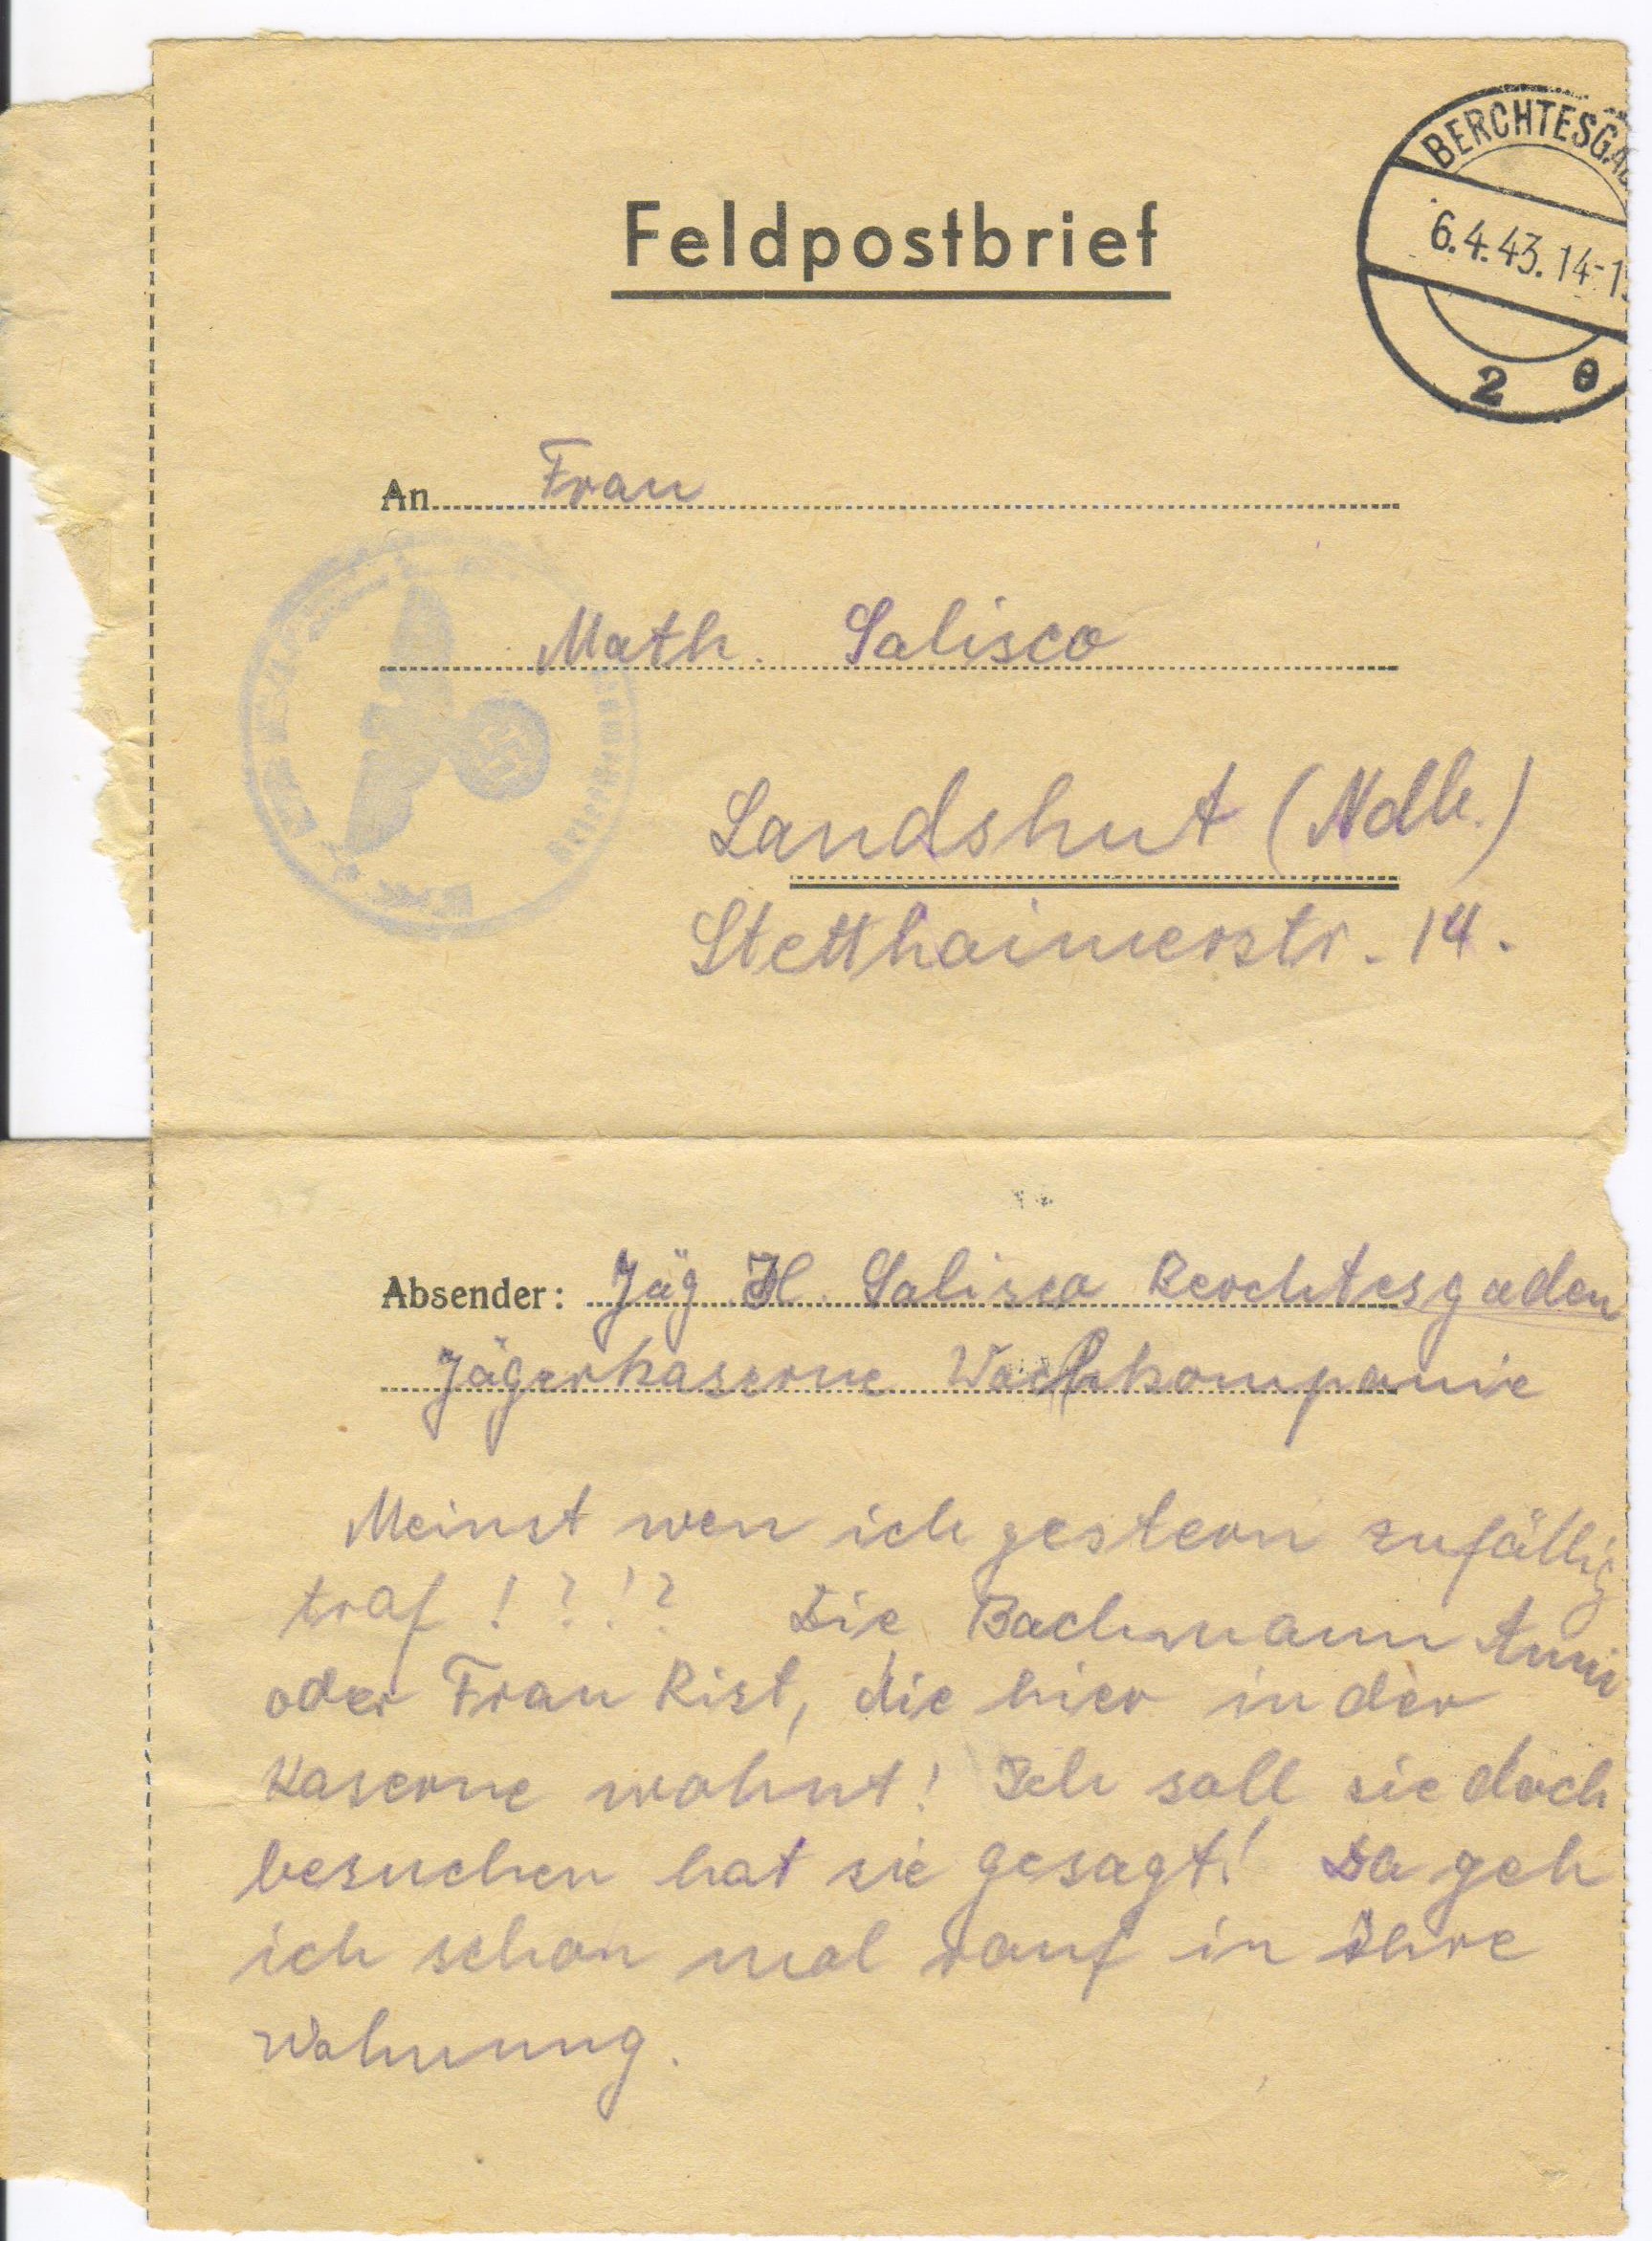 Feldpostbrief
BERCHTESGA
6.4.43.14-1
2 e
An Frau
Math. Salisco
Landshut (Ndb.)
Stetthaimerstr. 14.
Absender: Jäg. H. Salisco Berchtesgaden
Jägerkaserne Wachkompanie
Meinst wen ich gestern zufällig
traf!?!? Die Bachmann Anni
oder Frau Rist, die hier in der
Kaserne wohnt! Ich soll sie doch
besuchen hat sie gesagt! Da geh
ich schon mal rauf in Ihre
Wohnung.